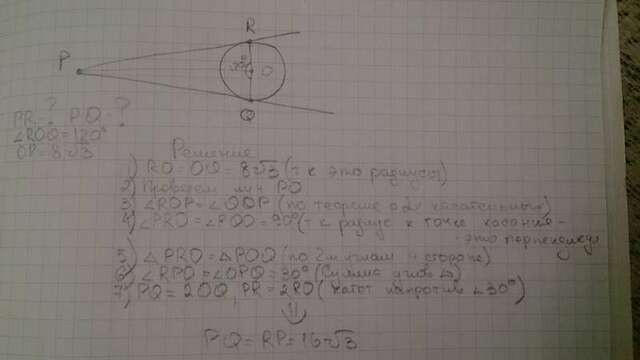 R
P
O
Q
PR-? PQ-?
∠ROQ=120°
OP=8√3
Решение
1) RO=OQ=8√3 (т к это радиусы)
2) Проведем луч PO
3) ∠ROP=∠QOP (по теореме о 2х касательных)
4) ∠PRO=∠PQO=90° (т к радиус к точке касания-
это перпендикуляр
5) △PRO=△POQ (по 2м углам и стороне)
6) ∠RPO=∠OPQ=30° (сумма углов △)
7) PQ=2OQ, PR=2RO (катет напротив ∠30°)
⇓
PQ=RP=16√3